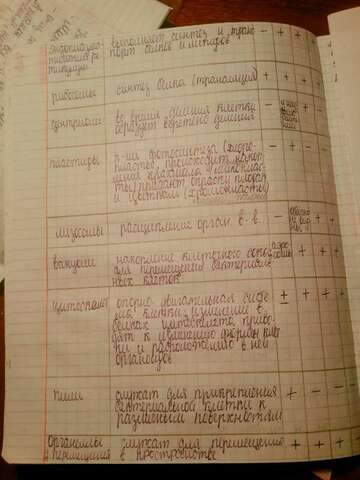 эндоплазма-
тический ре-
тикулум
выполняет синтез и транс-
порт белков и липидов
- + + +
рибосомы
синтез белка (трансляция)
+ + + +
центриоли
во время деления клетки
образует веретено деления
пластиды
р-ии фотосинтеза (хлоро-
пласты), происходит накоп-
ление крахмала (лейкоплас-
ты), придают окраску плодам
и цветкам (хромопласты)
- + - -
лизосомы
расщепление орган. в-в.
вакуоли
накопление клеточного сока
для перемещения бактериаль-
ных клеток
цитоскелет
опорно-двигательная систе-
ма клетки, изменения в
белках цитоскелета приво-
дят к изменению формы клет-
ки и расположению в ней
органоидов
± + + +
пили
служат для прикрепления
бактериальной клетки к
различным поверхностям
+ - - -
Органеллы
перемещения
служат для перемещения
в пространстве
+ + + +